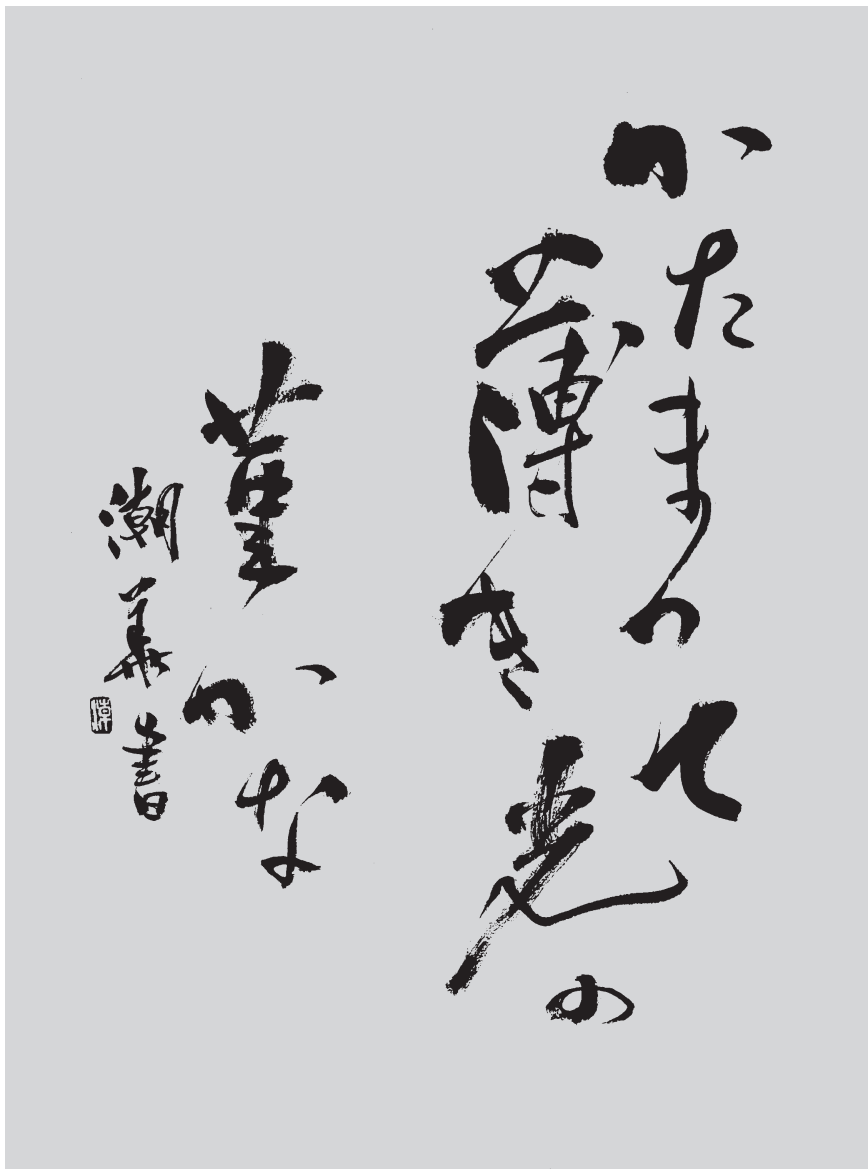 かたまりて
薄き光の
菫かな
潮華書